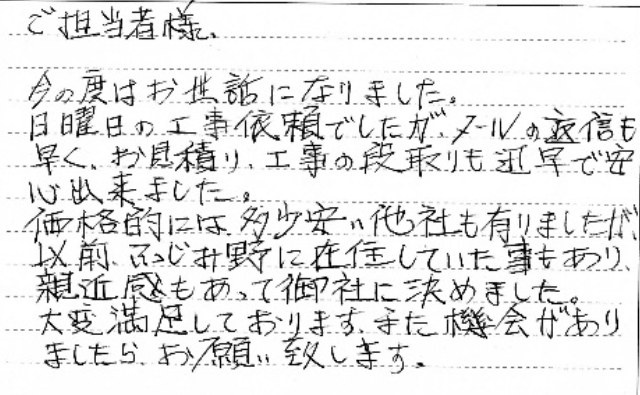 ご担当者様、
今の度はお世話になりました。
日曜日の工事依頼でしたが、メールの返信も
早く、お見積り、工事の段取りも迅早で安
心出来ました。
価格的には、多少安い他社も有りましたが、
以前、ふじみ野に在住していた事もあり、
親近感もあって御社に決めました。
大変満足しております。また機会があり
ましたら、お願い致します。